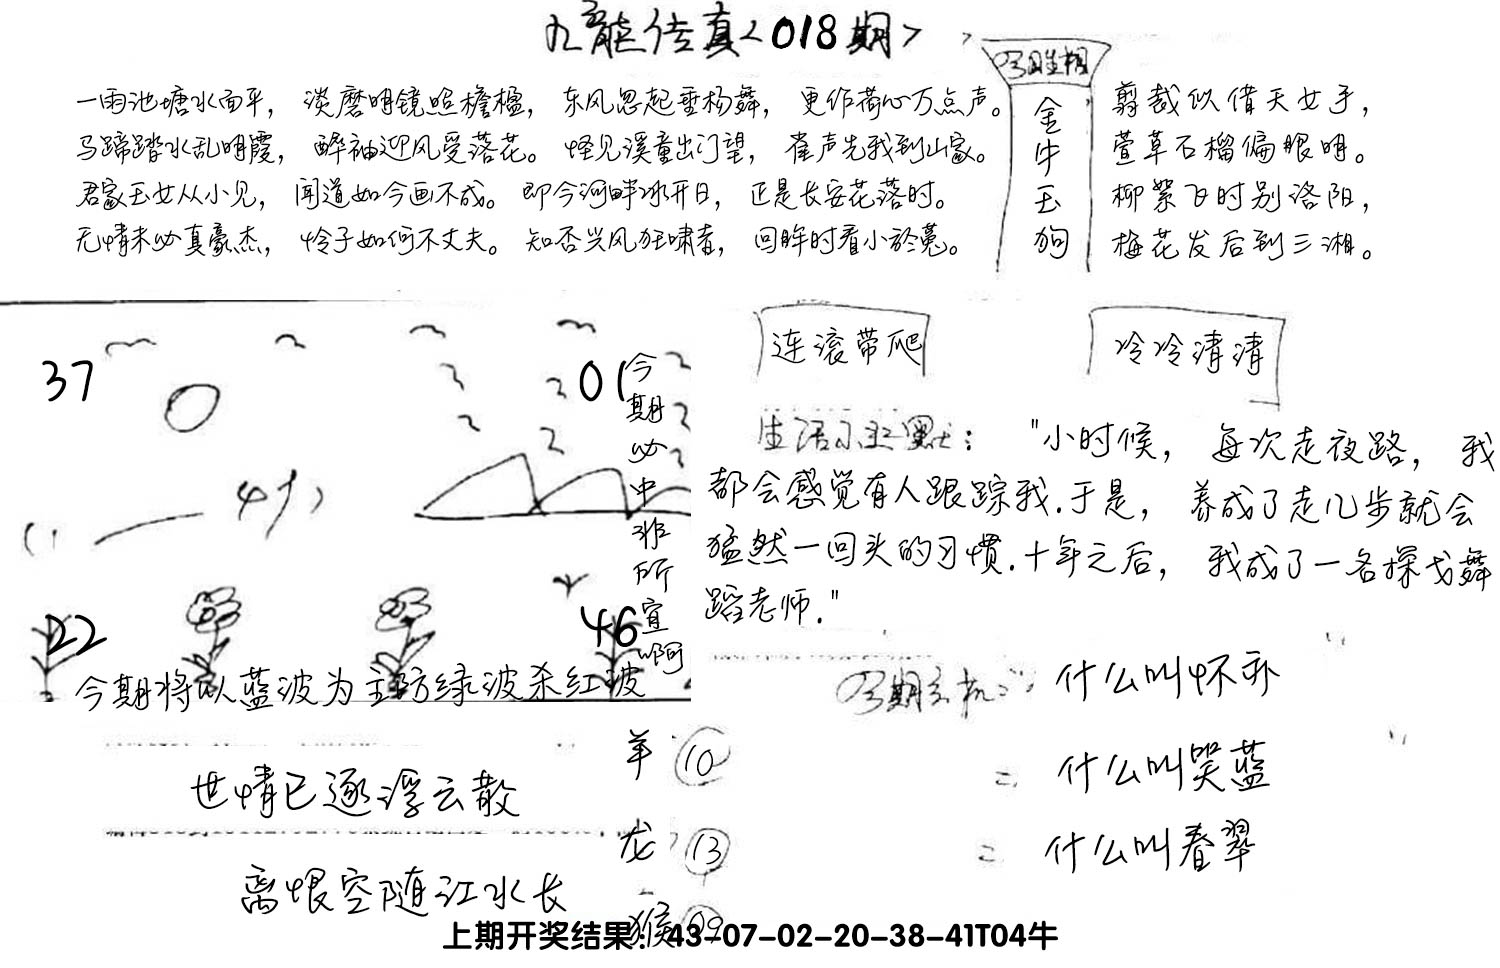 九龙传真<018期>
一雨池塘水面平，淡磨明镜照檐楹，东风忽起垂杨舞，更作荷心万点声。
马蹄踏水乱明霞，醉袖迎风受落花。怪见溪童出门望，雀声先我到山家。
君家玉女从小见，闻道如今画不成。即今河畔冰开日，正是长安花落时。
无情未必真豪杰，怜子如何不丈夫。知否兴风狂啸者，回眸时看小於菟。
今期生相
金牛玉狗
剪裁似借天女手，
萱草石榴偏眼明。
柳絮飞时别洛阳，
梅花发后到三湘。
37
01
今期必中非所宜啊
22
46
今期将以蓝波为主防绿波杀红波
连滚带爬
冷冷清清
生活小幽默："小时候，每次走夜路，我
都会感觉有人跟踪我.于是，养成了走几步就会
猛然一回头的习惯.十年之后，我成了一名探戈舞
蹈老师."
今期玄机: 什么叫怀孙
= 什么叫哭蓝
= 什么叫春翠
世情已逐浮云散
离恨空随江水长
羊 10
龙 13
猴 09
上期开奖结果：43-07-02-20-38-41T04牛